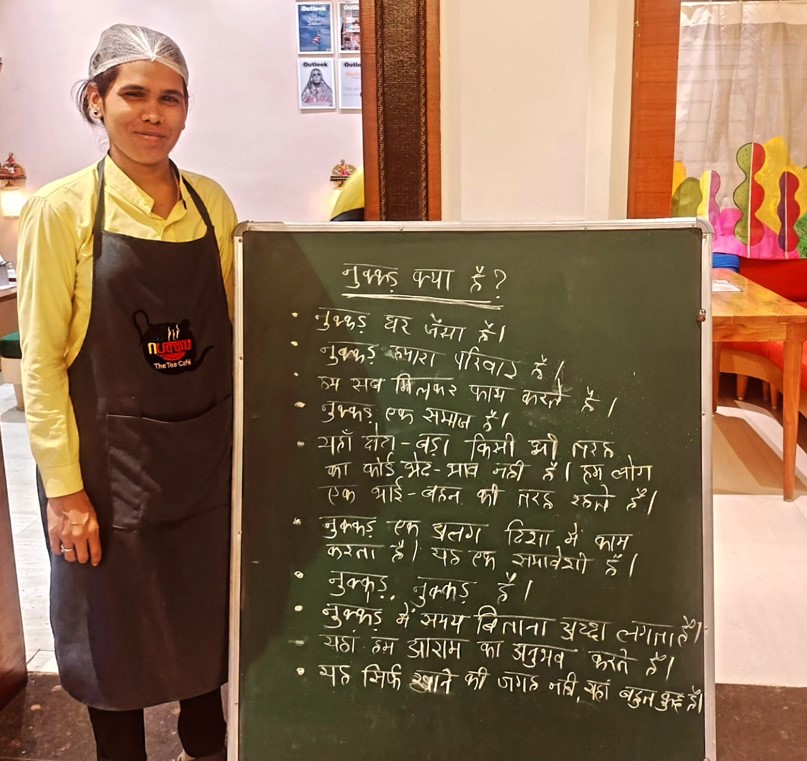 Outlook
Outlook
Outlook
NUKKAD
The Tea Café
नुक्कड़ क्या है?
• नुक्कड़ घर जैसा है।
• नुक्कड़ हमारा परिवार है।
• हम सब मिलकर काम करते है।
• नुक्कड़ एक समाज है।
• यहाँ छोटा-बड़ा किसी भी तरह
का कोई भेद-भाव नहीं है। हम लोग
एक भाई-बहन की तरह रहते है।
• नुक्कड़ एक अलग दिशा में काम
करता है। यह एक समावेशी है।
• नुक्कड़, नुक्कड़ है।
• नुक्कड़ में समय बिताना अच्छा लगता है।
- यहां हम आराम का अनुभव करते है।
• यह सिर्फ खाने की जगह नही, यहां बहुत कुछ है।